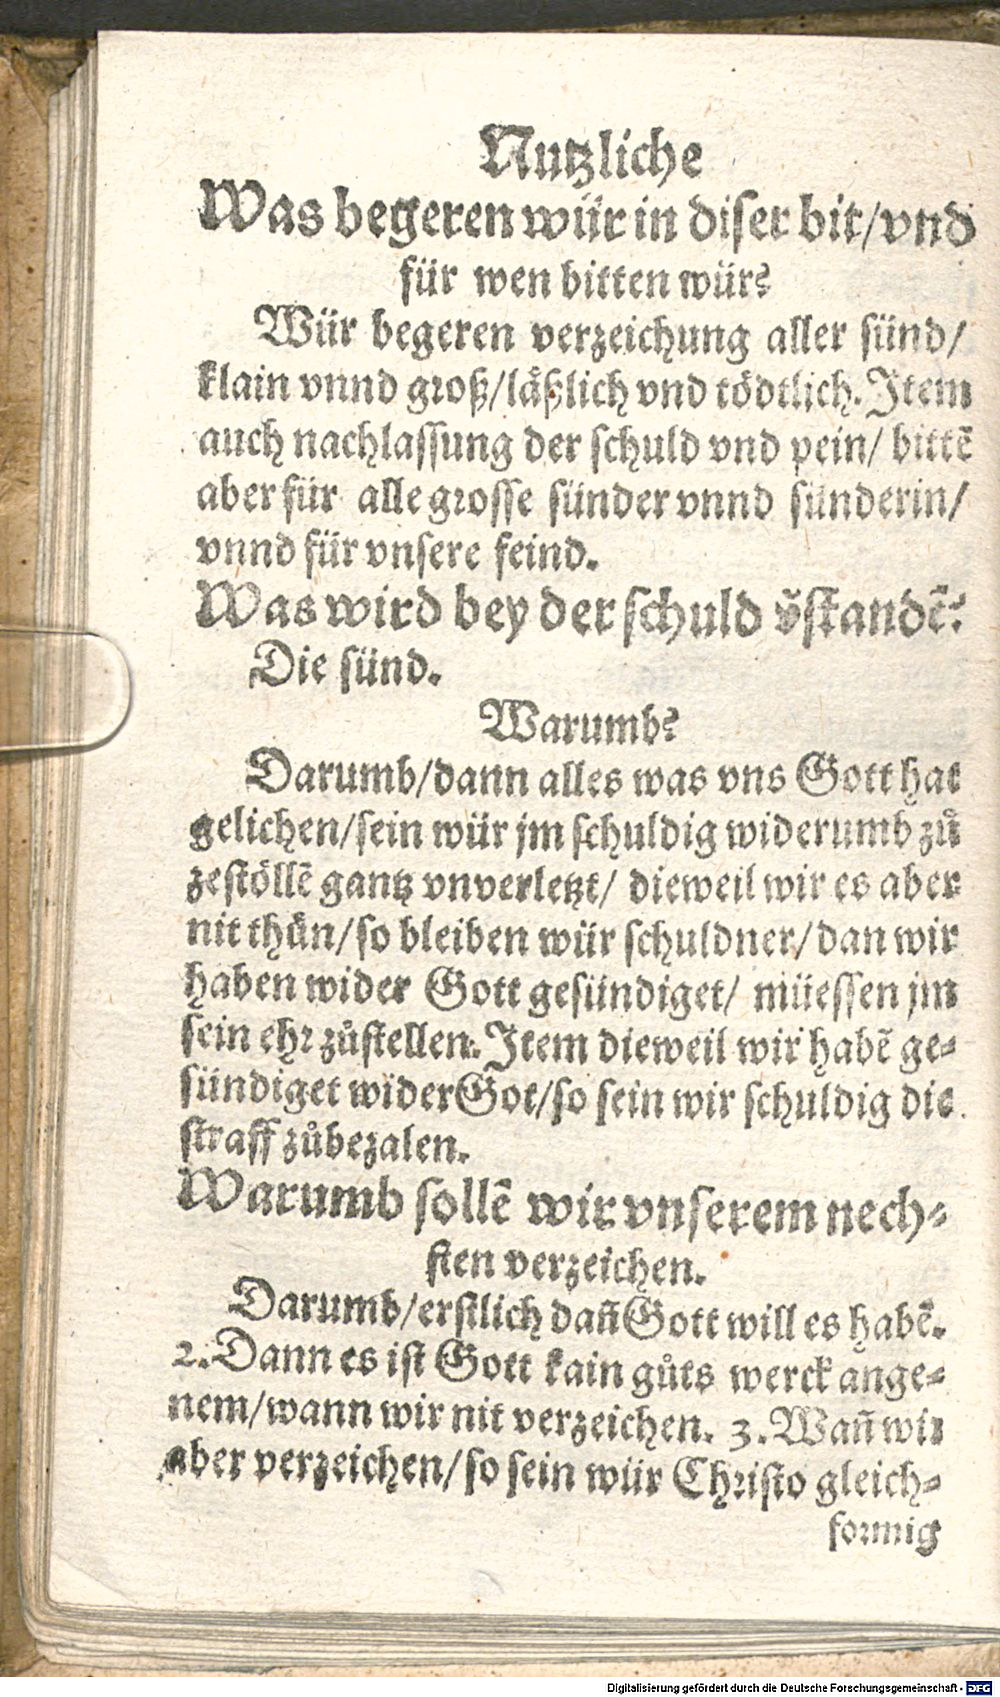 Nutzliche
Was begeren wür in diser bit/vnd
für wen bitten wür?
Wür begeren verzeichung aller sünd/
klain vnnd groß/läßlich vnd tödtlich. Item
auch nachlassung der schuld vnd pein/ bittẽ
aber für alle grosse sünder vnnd sünderin/
vnnd für vnsere feind.
Was wird bey der schuld v̄standẽ?
Die sünd.
Warumb?
Darumb/dann alles was vns Gott hat
gelichen/sein wür jm schuldig widerumb zů
zestöllẽ gantz vnverletzt/ dieweil wir es aber
nit thůn/so bleiben wür schuldner/dan wir
haben wider Gott gesündiget/ müessen jm
sein ehr zůstellen. Item dieweil wir habẽ ge-
sündiget wider Got/so sein wir schuldig die
straff zůbezalen.
Warumb sollẽ wir vnserem nech-
sten verzeichen.
Darumb/erstlich dañ Gott will es habẽ.
2. Dann es ist Gott kain gůts werck ange-
nem/wann wir nit verzeichen. 3. Wañ wir
aber verzeichen/so sein wür Christo gleich-
formig
Digitalisierung gefördert durch die Deutsche Forschungsgemeinschaft - DFG